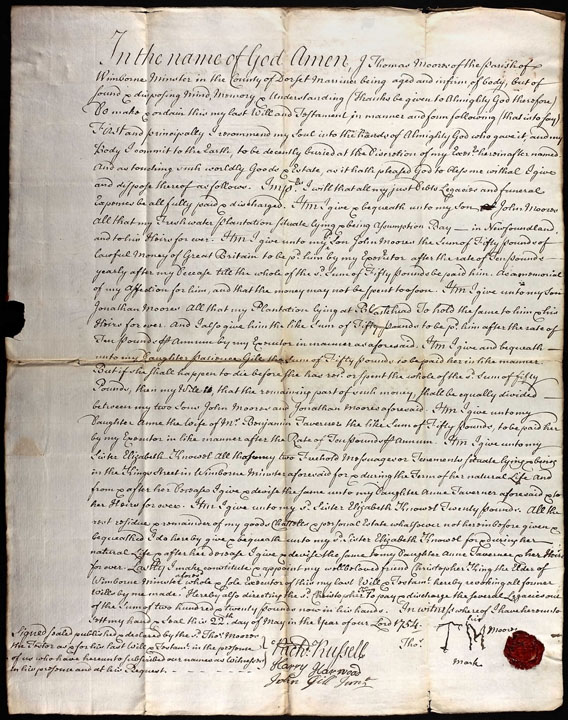 In the name of God Amen, I Thomas Moores of the Parish of
Wimborne Minster in the County of Dorset Mariner being aged and infirm of body, but of
sound & disposing Mind, Memory & Understanding (Thanks be given to Almighty God therefore)
Do make & ordain this my last Will and Testament in manner and form following (that is to say)
First and principally I recommend my Soul into the Hands of Almighty God who gave it, and my
Body I commit to the Earth, to be decently buried at the Discretion of my Exec.r hereinafter named
And as touching such worldly Goods & Estate, as it hath pleased God to bless me withal I give
and dispose thereof as follows. I will that all my just Debts Legacies and funeral
Expences be all fully paid & discharged. Itm I give & bequeath unto my Son John Moores
All that my Freshwater Plantation situate lying & being Assumption Bay in Newfoundland,
and to his Heirs for ever. Itm I give unto my s.d Son John Moores the Sum of Fifty Pounds of
Lawful Money of Great Britain to be p.d him by my Exec.tor after the rate of Ten Pounds
yearly after my Decease till the whole of the s.d Sum of Fifty Pounds be paid him. As a memorial
of my Affection for him, and that the money may not be spent too soon. Itm I give unto my Son
Jonathan Moores All that my Plantation lying at To hold the same to him & his
Heirs for ever. And I also give him the like Sum of Fifty Pounds to be p.d him after the rate of
Ten Pounds Annum by my Executor in manner as aforesaid. Itm I give and bequeath
unto my Daughter Patience Gill the Sum of Fifty Pounds to be paid her in like manner
But if she shall happen to die before she has rec.d or spent the whole of the s.d Sum of fifty
Pounds, then my Will is, that the remaining part of such money, shall be equally divided
between my two Sons John Moores and Jonathan Moores aforesaid. Itm I give unto my
Daughter Anne the Wife of Mr. Benjamin Taverner the like Sum of Fifty Pounds, to be paid her
by my Executor in like manner after the Rate of Ten Pounds Annum. Itm I give unto my
Sister Elizabeth All those my two Freehold Messuages or Tenements situate lying & being
in the Kings Street in Wimborne Minster aforesaid for & during the Term of her natural Life And
from & after her Decease I give & devise the same unto my Daughter Anne Taverner aforesaid & to
her Heirs for ever. Itm I give unto my s.d Sister Elizabeth Twenty Pounds. All the
rest residue & remainder of my goods Chattels & personal Estate whatsoever not herein before given &
bequeathed I do hereby give & bequeath unto my s.d Sister Elizabeth for & during her
natural Life & after her decease I give & devise the same to my Daughter Anne Taverner & her Heirs
for ever. Lastly I make constitute & appoint my well beloved friend Christopher King the Elder of
Wimborne Minster whole & Sole Executor of this my last Will & Testam.t hereby revoking all former
Wills by me made. Hereby also directing the s.d Christopher To pay & discharge the several Legacies out
of the Sum of two hundred & twenty Pounds now in his hands. In witness whereof I have hereunto
set my hand & Seal this 22.th day of May in the Year of our Lord 1754.
Signed sealed published & declared by the s.d Tho.s Moores
the Testor as & for his last Will & Testam.t in the presence
of us who have hereunto subscribed our names as Witnesses
in his presence and at his Request.
Zach.s Russell
Harry Harwood
John Gill Jun.r
Tho.s
T M
his
Moores
mark